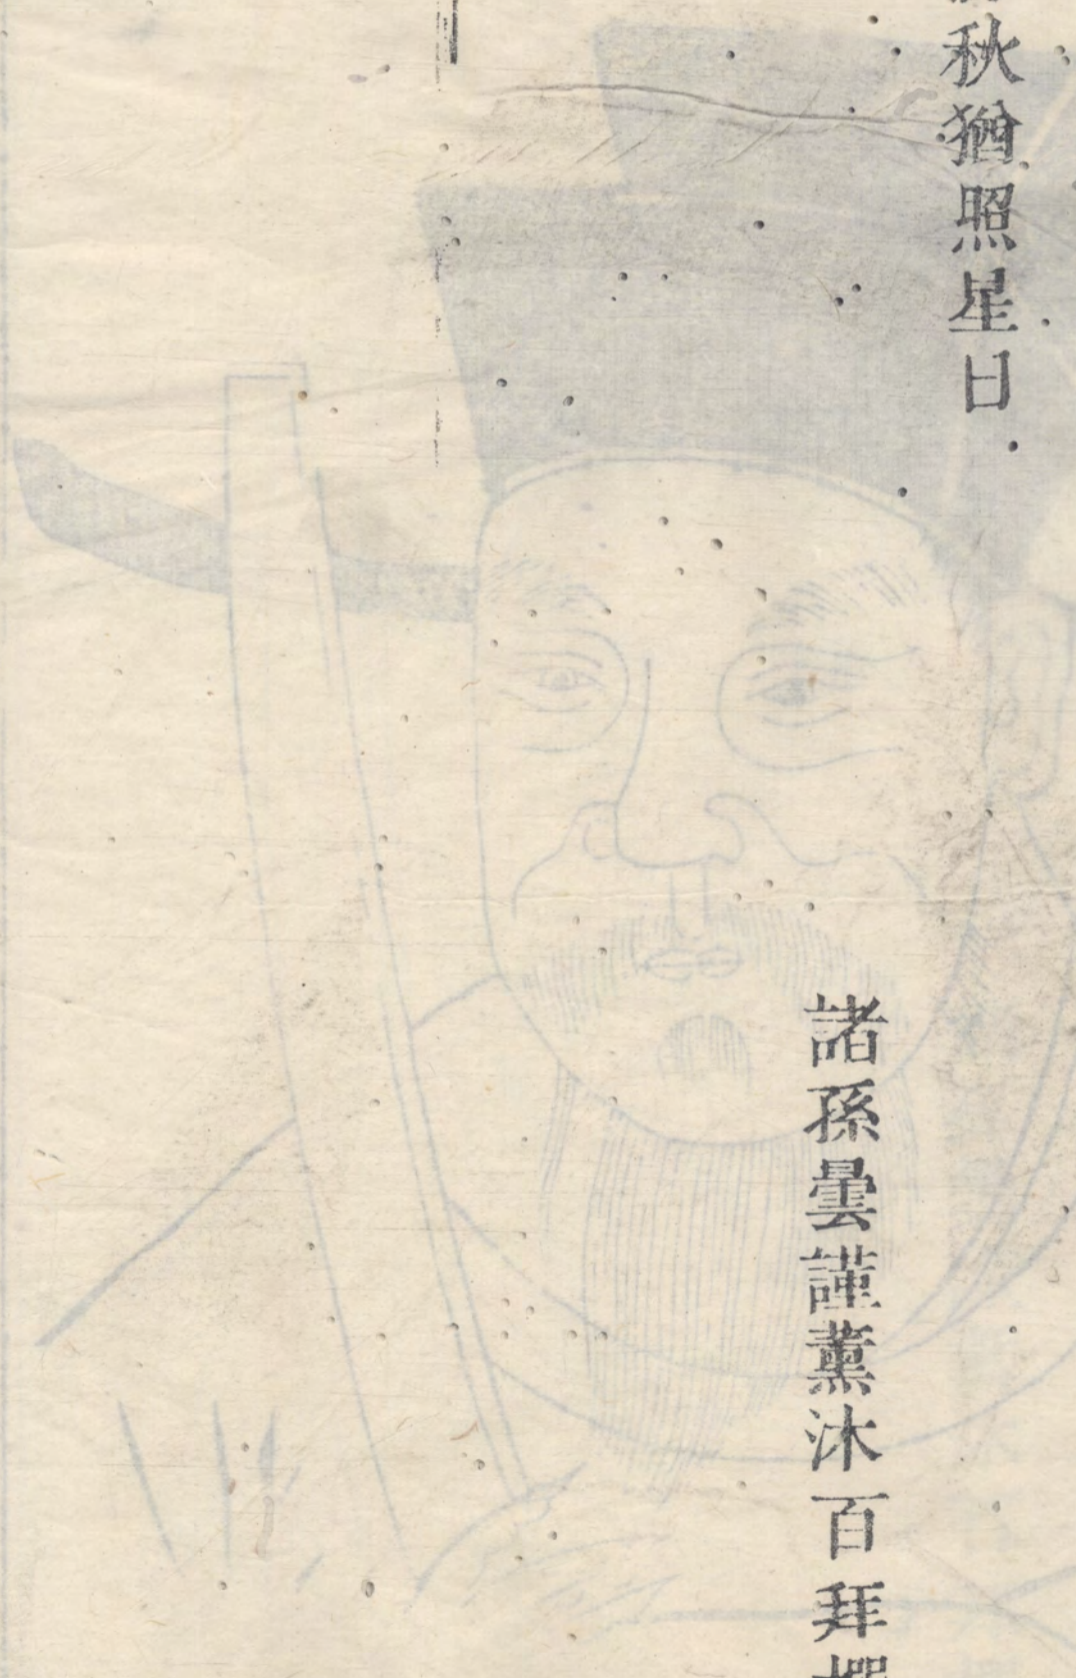 秋猶照星日
諸孫曇謹薰沐百拜